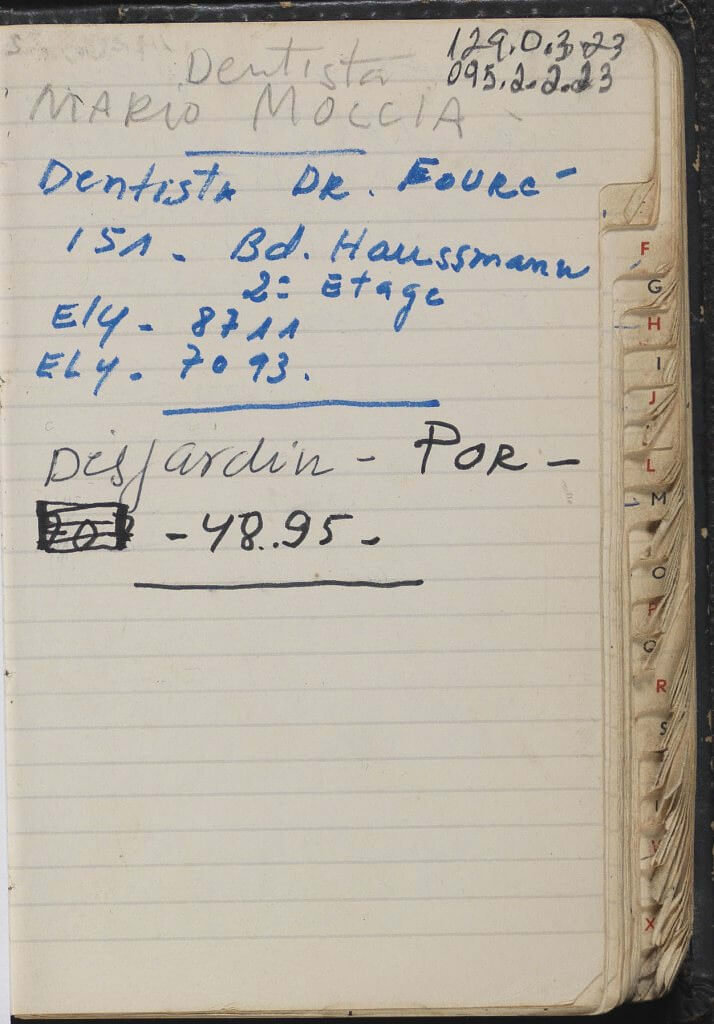 129.0.3.23
095.2.2.23
Dentista
MARIO MOCCIA -
Dentista DR. FOURC -
151 - Bd. Haussmann
2= Etage
Ely - 8711
ELY. 7093.
Desjardin - POR -
- 48..95 -
F
G
H
I
J
L
M
O
P
Q
R
S
X